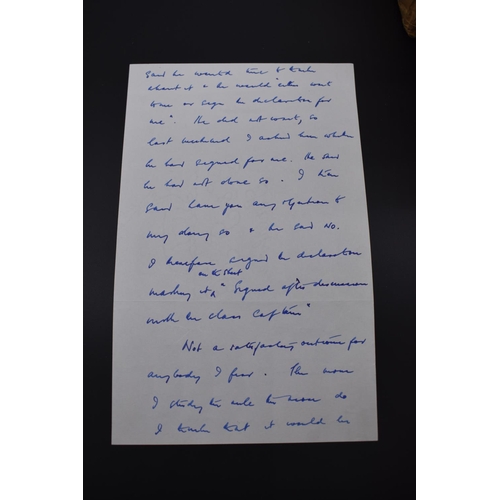 said he would like to think
about it & he would either want
time or sign the declaration for
me". He did not want, so
last weekend I asked him whether
he had signed for me. He said
he had not done so. I then
said have you any objection to
my doing so & he said No.
I therefore signed the declaration
on the sheet
marking it "Signed after discussion
with the class Captain"
Not a satisfactory outcome for
anybody I fear. The more
I study the rule the more do
I think that it would be